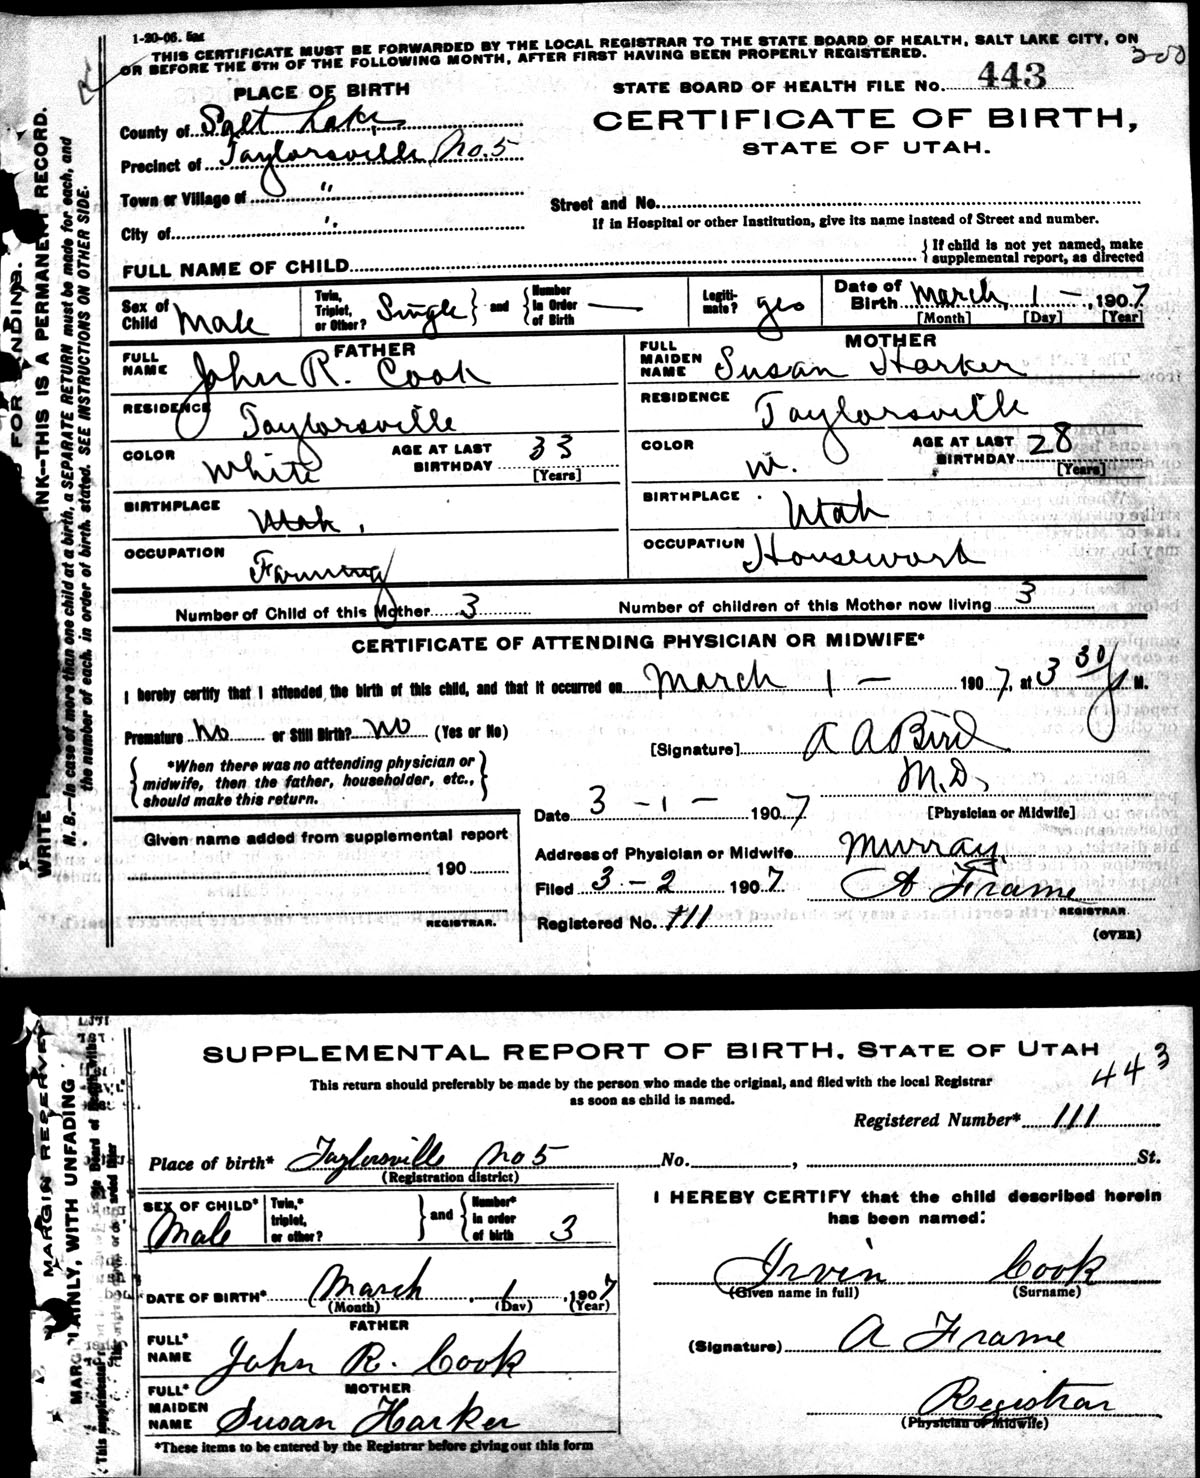 1-20-06. 5m
THIS CERTIFICATE MUST BE FORWARDED BY THE LOCAL REGISTRAR TO THE STATE BOARD OF HEALTH, SALT LAKE CITY, ON
OR BEFORE THE 5TH OF THE FOLLOWING MONTH, AFTER FIRST HAVING BEEN PROPERLY REGISTERED.
PLACE OF BIRTH
STATE BOARD OF HEALTH FILE No. 443
County of Salt Lake
CERTIFICATE OF BIRTH,
Precinct of Taylorsville No. 5
STATE OF UTAH.
Town or Village of "
Street and No.
City of "
If in Hospital or other Institution, give its name instead of Street and number.
FULL NAME OF CHILD
{ If child is not yet named, make
supplemental report, as directed
Sex of Child Male
Twin, Triplet, or Other? Single } and { Number in Order of Birth —
Legiti-mate? yes
Date of Birth March 1 — , 1907
[Month] [Day] [Year]
FATHER
FULL NAME John R. Cook
MOTHER
FULL MAIDEN NAME Susan Harker
RESIDENCE Taylorsville
RESIDENCE Taylorsville
COLOR White
AGE AT LAST BIRTHDAY 33 [Years]
COLOR W.
AGE AT LAST BIRTHDAY 28 [Years]
BIRTHPLACE Utah.
BIRTHPLACE Utah
OCCUPATION Farming
OCCUPATION Housework
Number of Child of this Mother 3
Number of children of this Mother now living 3
CERTIFICATE OF ATTENDING PHYSICIAN OR MIDWIFE*
I hereby certify that I attended the birth of this child, and that it occurred on March 1 — 1907, at 3 30 M.
Premature No or Still Birth? No (Yes or No)
[Signature] A A Bird
M.D.
[Physician or Midwife]
{ *When there was no attending physician or
midwife, then the father, householder, etc.,
should make this return. }
Date 3 - 1 - 1907
Given name added from supplemental report
190
REGISTRAR.
Address of Physician or Midwife Murray
Filed 3 - 2 1907 A Frame
REGISTRAR
Registered No. 111
(OVER)
WRITE
INK--THIS IS A PERMANENT RECORD.
N. B.--In case of more than one child at a birth, a SEPARATE RETURN must be made for each, and
the number of each, in order of birth, stated. SEE INSTRUCTIONS ON OTHER SIDE.
SUPPLEMENTAL REPORT OF BIRTH, STATE OF UTAH
443
This return should preferably be made by the person who made the original, and filed with the local Registrar
as soon as child is named.
Registered Number* 111
Place of birth* Taylorsville No 5 No. , St.
(Registration district)
SEX OF CHILD* Male
Twin,* triplet, or other? } and { Number* in order of birth 3
I HEREBY CERTIFY that the child described herein
has been named:
Irvin Cook
(Given name in full) (Surname)
DATE OF BIRTH* March 1, 1907
(Month) (Day) (Year)
FATHER
FULL* NAME John R. Cook
(Signature) A Frame
MOTHER
FULL* MAIDEN NAME Susan Harker
Registrar
(Physician or Midwife)
*These items to be entered by the Registrar before giving out this form
MARGIN RESERVE
PLAINLY, WITH UNFADING